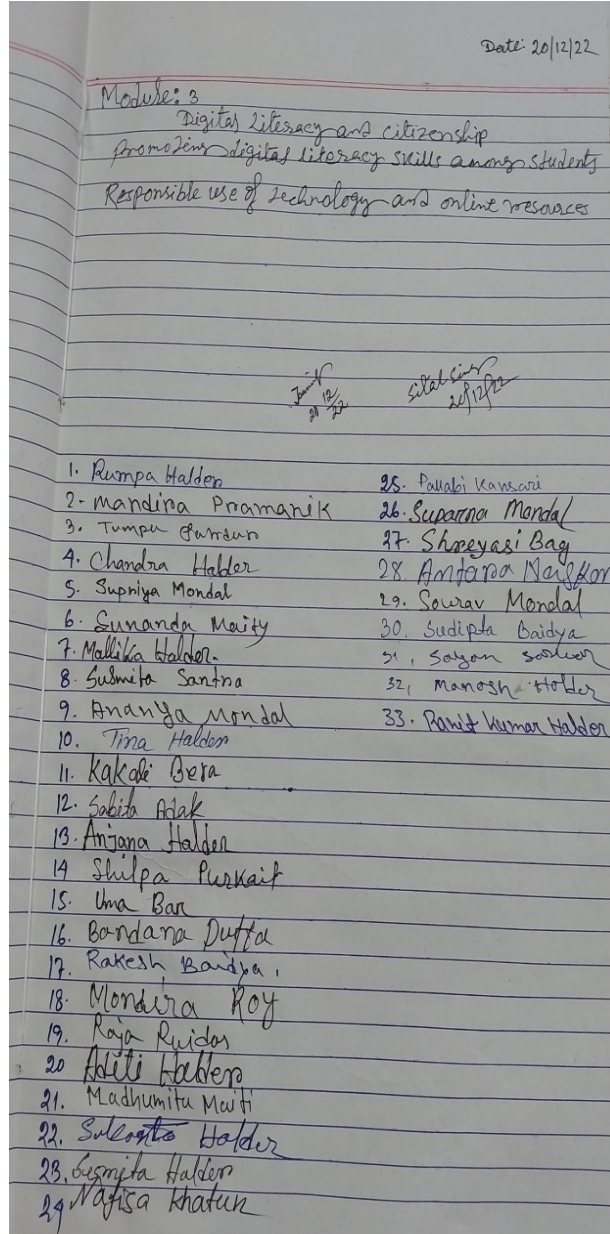 Date: 20/12/22
Module: 3
Digital Literacy and citizenship
promoting digital literacy skills among students
Responsible use of technology and online resources
20/12/22
Sital
20/12/22
1. Rumpa Halder
2. Mandira Pramanik
3. Tumpa
4. Chandra Halder
5. Supriya Mondal
6. Sunanda Maity
7. Mallika Halder.
8. Susmita Santra
9. Ananya Mondal
10. Tina Halder
11. Kakali Bera
12. Sabita Adak
13. Anjana Halder
14 Shilpa Purkait
15. Uma Bar
16. Bandana Dutta
17. Rakesh Baidya.
18. Mondira Roy
19. Raja Ruidas
20 Aditi Halder
21. Madhumita Maiti
22. Sukanto Halder
23. Susmita Halder
24 Nafisa Khatun
25. Pallabi Kansari
26. Suparna Mondal
27. Shreyasi Bag
28. Antara Naskar
29. Sourav Mondal
30. Sudipta Baidya
31, Sayan Sardar
32, Manosh Holder
33. Ranit Kumar Halder